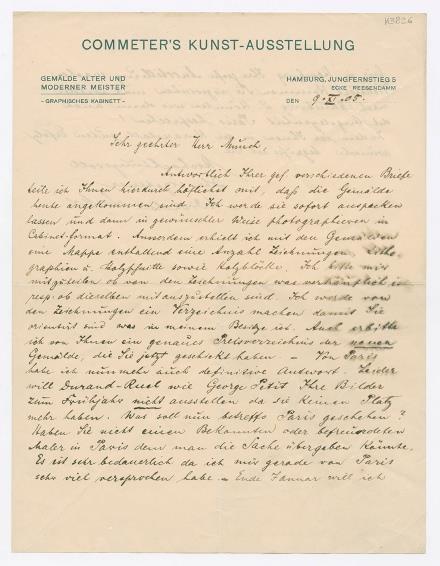 K3826
COMMETER'S KUNST-AUSSTELLUNG
GEMÄLDE ALTER UND
MODERNER MEISTER
- GRAPHISCHES KABINETT -
HAMBURG, JUNGFERNSTIEG 5
ECKE REESENDAMM
DEN 9. XI. 05.
Sehr geehrter Herr Munch,
Antwortlich Ihrer gef. verschiedenen Briefe
teile ich Ihnen hierdurch höflichst mit, daß die Gemälde
heute angekommen sind. Ich werde sie sofort auspacken
lassen und dann in gewünschter Weise photographieren in
Cabinet-format. Ausserdem erhielt ich mit den Gemälden
eine Mappe enthaltend eine Anzahl Zeichnungen, Litho-
graphien u. Holzschnitte sowie Holzblöcke. Ich bitte mir
mitzuteilen ob von den Zeichnungen was verkäuflich ist
resp. ob dieselben mit auszustellen sind. Ich werde von
den Zeichnungen ein Verzeichnis machen damit Sie
orientirt sind was in meinem Besitze ist. Auch erbitte
ich von Ihnen ein genaues Preisverzeichnis der neuen
Gemälde, die Sie jetzt geschickt haben. - Von Paris
habe ich nunmehr auch definitive Antwort. Leider
will Durand-Ruel wie George Petit Ihre Bilder
zum Frühjahr nicht ausstellen da sie keinen Platz
mehr haben. Was soll nun betreffs Paris geschehen?
Haben Sie nicht einen Bekannten oder befreundeten
Maler in Paris dem man die Sache übergeben könnte.
Es ist sehr bedauerlich da ich mir gerade von Paris
sehr viel versprochen habe. - Ende Januar will ich